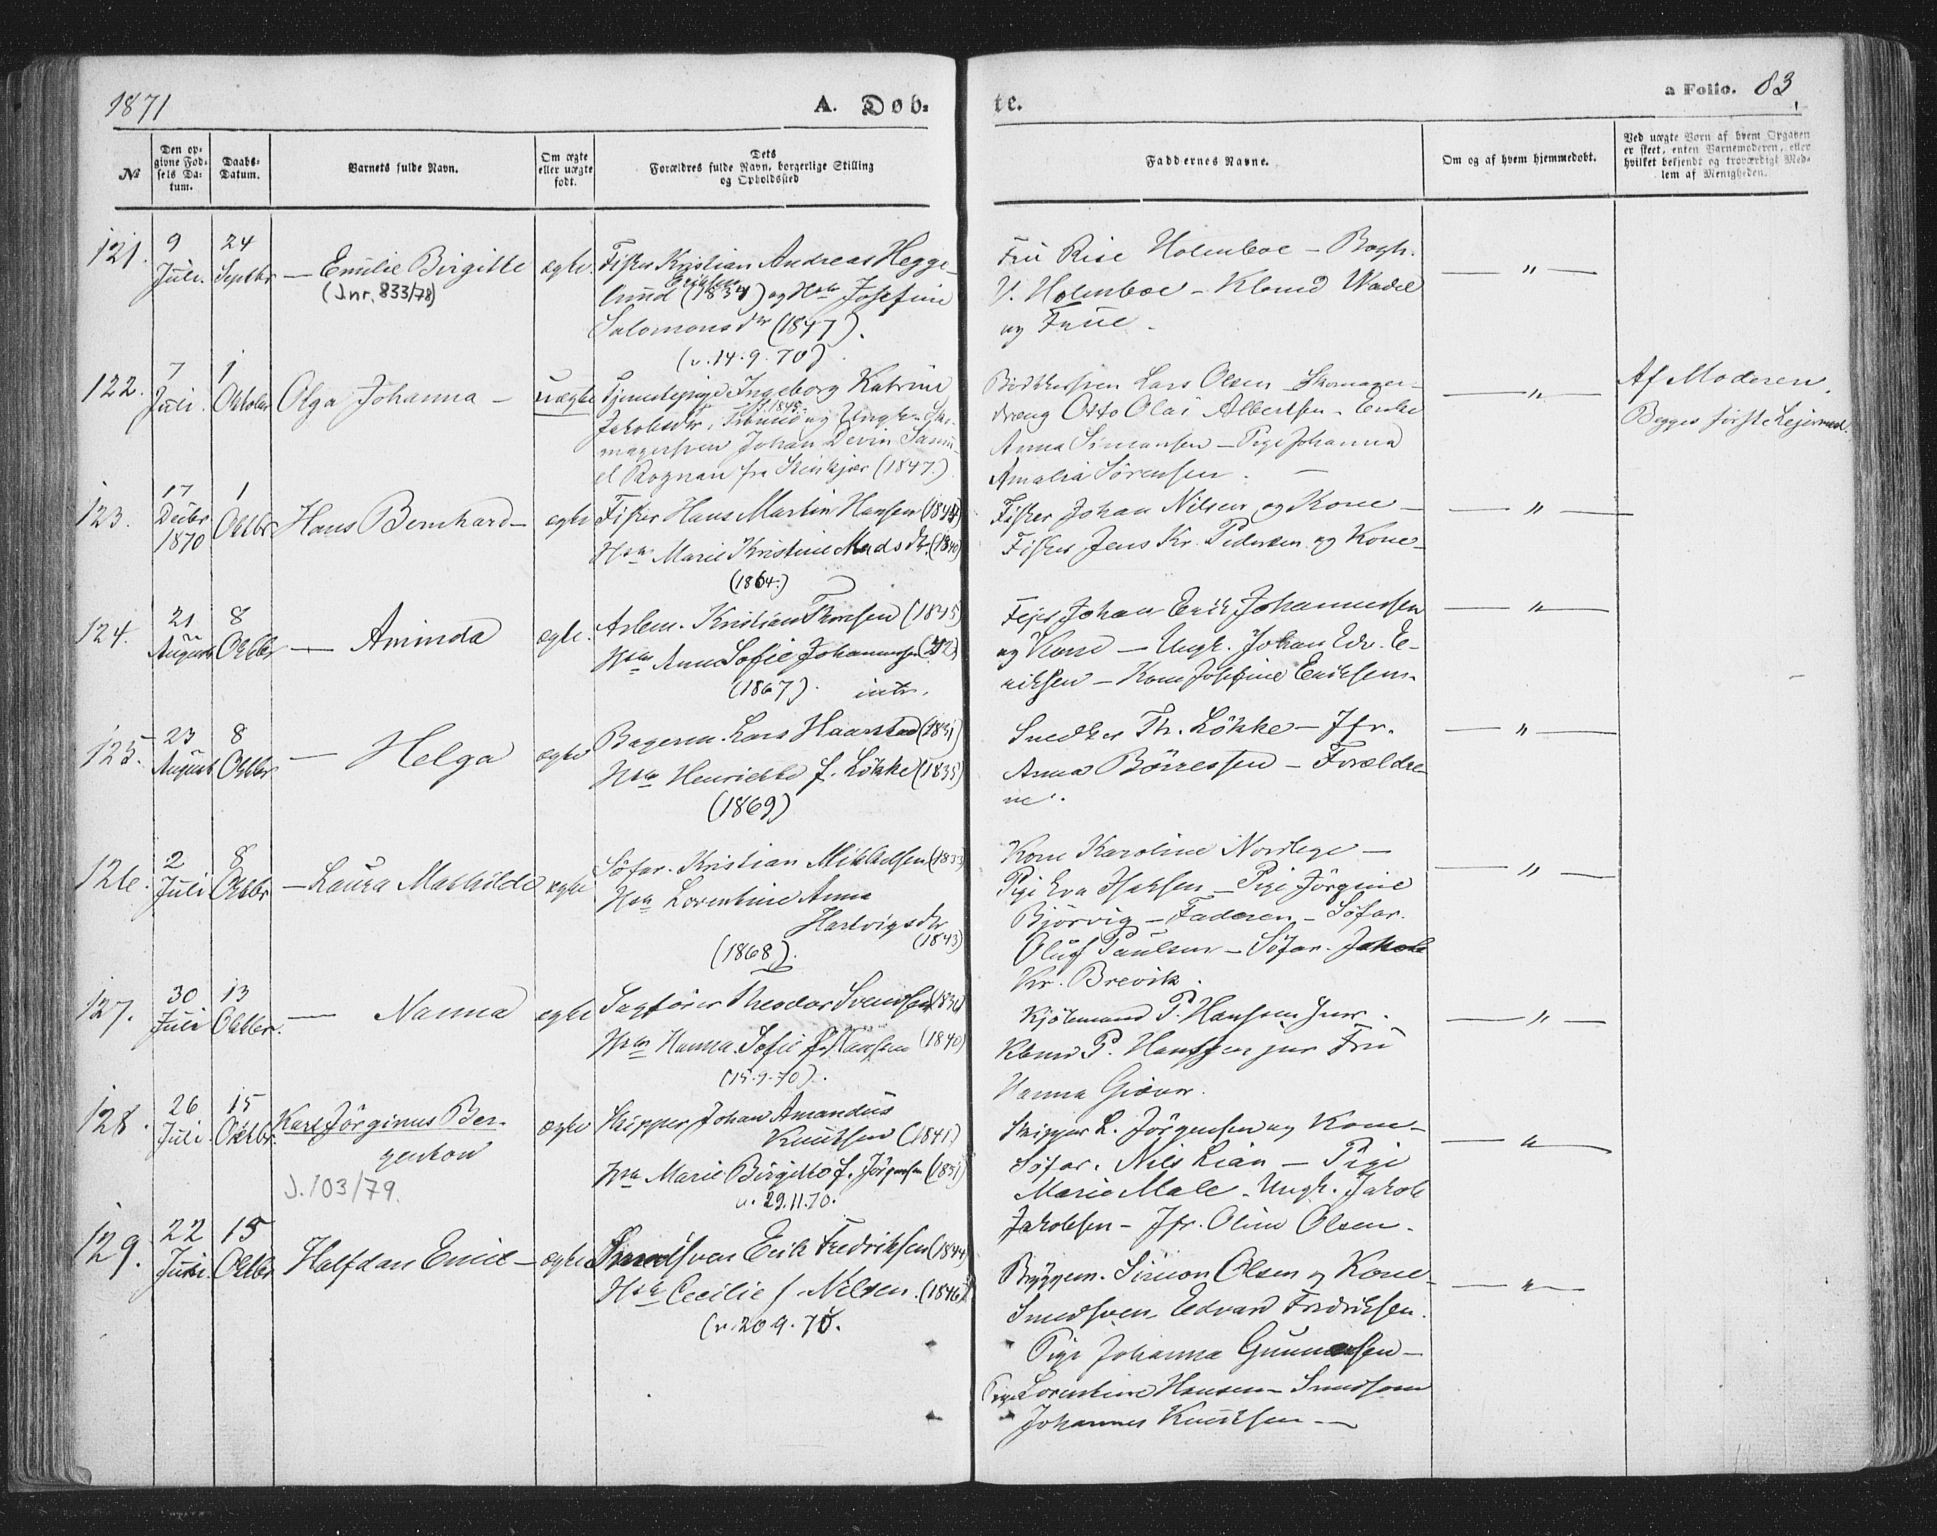 1871
A. Døb-
te.
a Folio. 83
№
Den op-
givne Fød-
sels Da-
tum.
Daabs-
Datum.
Barnets fulde Navn.
Om ægte
eller uægte
født.
Dets
Forældres fulde Navn, borgerlige Stilling
og Opholdssted
Faddernes Navne.
Om og af hvem hjemmedøbt.
Ved uægte Børn af hvem Opgaven
er skeet, enten Barnemoderen, eller
hvilket bekjendt og troværdigt Med-
lem af Menigheden.
121.
9
Juli.
24
Septbr
— Emilie Birgitte
(J.nr. 833/78)
ægte.
Fisker Kristian Andreas Hegge-
lund Eriksen (1834) og Hst Josefine
Salomonsdtr (1847).
(v. 14.9.70).
Fru Rise Holmboe — Bogh.
V. Holmboe — Kbmd Wadel
og Frue.
— " —
122.
7
Juli.
1
Oktober
Olga Johanna —
uægte
Tjenestepige Ingeborg Katrine
Jakobsdtr, f. 1845. og Ungk. Sko-
magersven Johan Devin Samu-
el Rognan fra Stenkjær (1847.)
Lars Olsen — Skomager-
dreng Otto Olai Albertsen — Enke
Anna Simonsen — Pige Johanna
Amalia Sørensen. —
— " —
Af Moderen.
Begges første Lejermaal.
123.
17
Decbr
1870
1
Oktbr
Hans Bernhard —
ægte
Fisker Hans Martin Hansen (1844)
Hst Marie Kristine Madsdtr. (1840)
(1864.)
Fisker Johan Nilsen og Kone —
Fisker Jens Kr. Pedersen og Kone —
— " —
124.
21
August
8
Oktbr
— Aminda
ægte.
Arbm. Kristian Thoresen (1845)
Hst Anne Sofie Johannessen
(1867). intr.
Johan Erik Johannessen
og Kone — Ungk. Johan Edv. E-
riksen — Kone Josefine Eriksen.
— " —
125.
23
August
8
Oktbr
— Helga
ægte
Bagerm. Lars Haarstad (1831)
Hst Henriette f. Løkke (1835)
(1869)
Snedker Th. Løkke — Jfr.
Anna Børresen — Forældre-
ne.
— " —
126.
2
Juli
8
Oktbr
— Laura Mathilde
ægte
Søfar. Kristian Mikkelsen (1833)
Hst Lorentine Anna
Hartvigsdtr
(1843)
(1868).
Kone Karoline Norlege —
Pige Eva — Pige Jørgine
Bjørvig — Faderen — Søfar.
Oluf Paulsen — Søfar. Jakob
Kr. Brevik.
— " —
127.
30
Juli
13
Oktbr.
— Nanna
ægte
Sagfører Theodor Svendsen
Hst Hanna Sofie f. Hansen (1840)
(15.9.70).
Kjøbmand P. Hansen Junr.
Kbmd P. Hansen jun Fru
Hanna Giæver.
— " —
128.
26
Juli
15
Oktbr.
Karl Jørginus Ber-
genkow
J. 103/79.
ægte
Skipper Johan Amandus
Knutsen (1841)
Hst Marie Birgitte f. Jørgensen (1851)
v. 29.11.70.
Skipper L. Jørgensen og Kone —
Søfar. Nils Lian — Pige
Marie Male — Ungk. Jakob
Jakobsen — Jfr. Oline Olsen.
— " —
129.
22
Juni.
15
Oktbr
Halfdan Emil —
ægte
Smedsven Erik Fredriksen (1844)
Hst Cecilie f. Nilsen. (1846)
(v. 20.9.70.
Byggem. Simon Olsen og Kone —
Smedsven Edvard Fredriksen.
Pige Johanna Gunnersen —
Pige Lorentine Hansen — Smedsven
Johannes Knutsen —
— " —